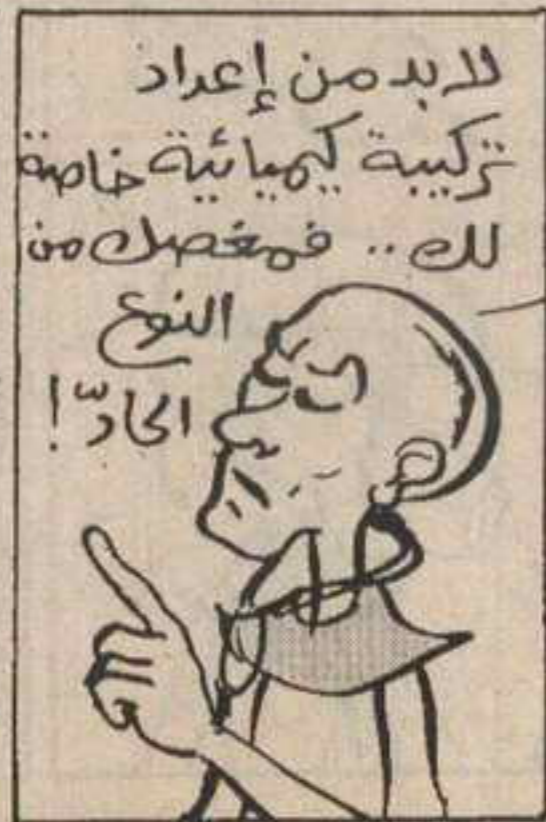 لابد من إعداد
تركيبة كيميائية خاصة
لك .. فمغصك من
النوع
الحادّ!